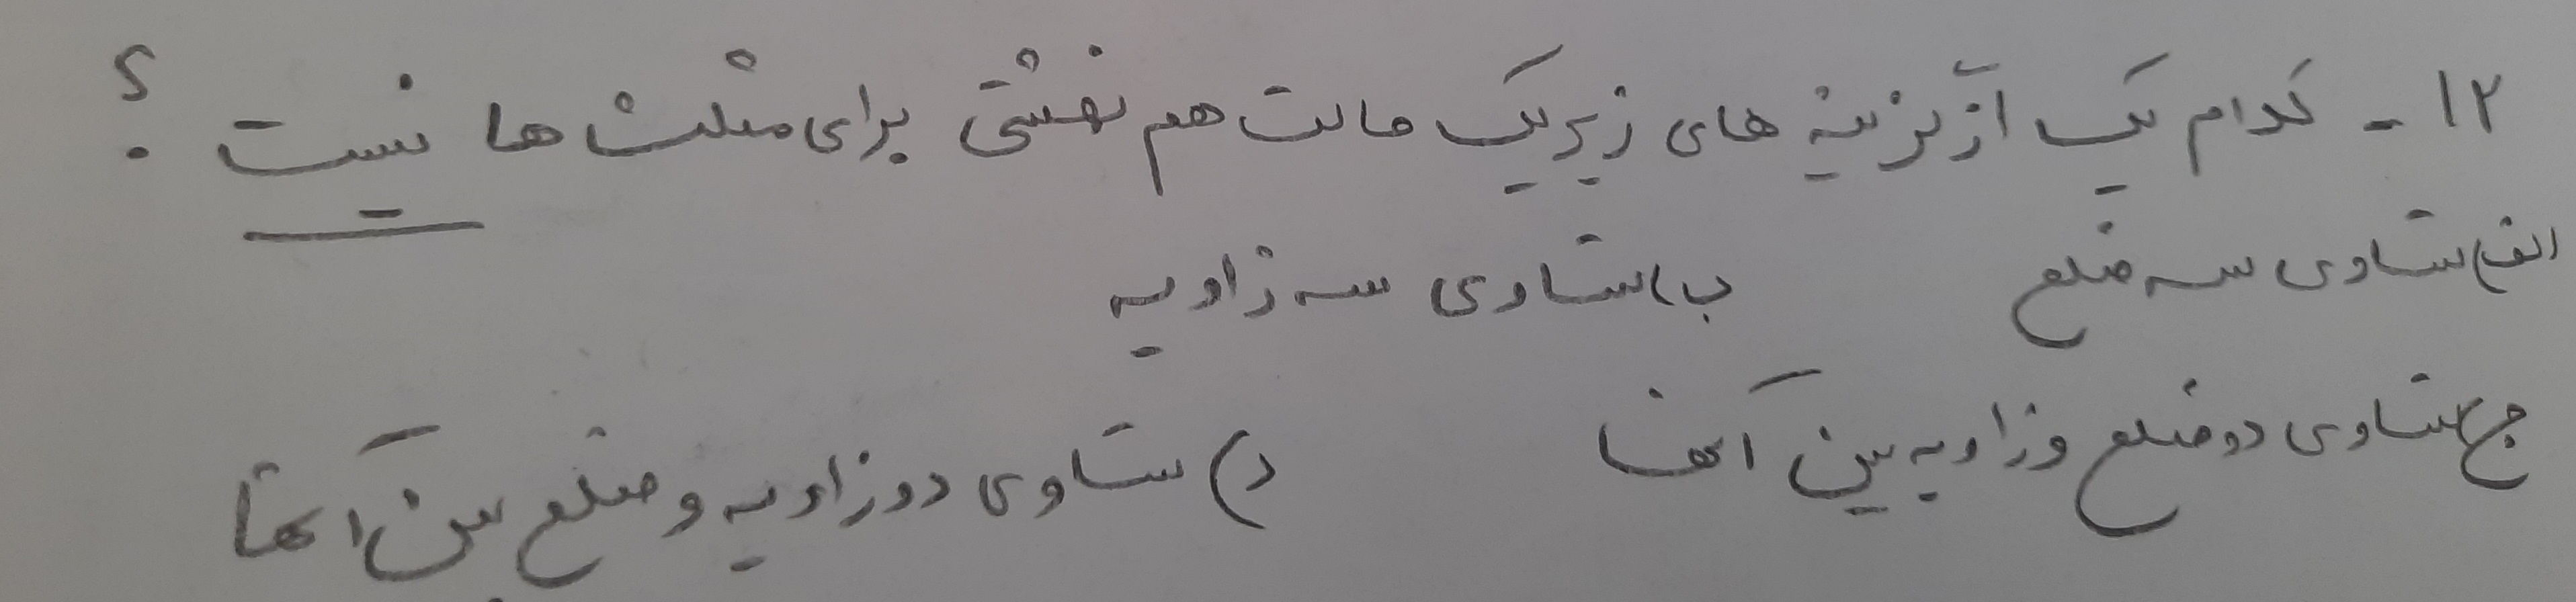 ۱۲- کدام یک از گزینه های زیر یک حالت هم نهشتی برای مثلث ها نیست ؟
الف) تساوی سه ضلع ب) تساوی سه زاویه
ج) تساوی دو ضلع و زاویه بین آنها د) تساوی دو زاویه و ضلع بین آنها